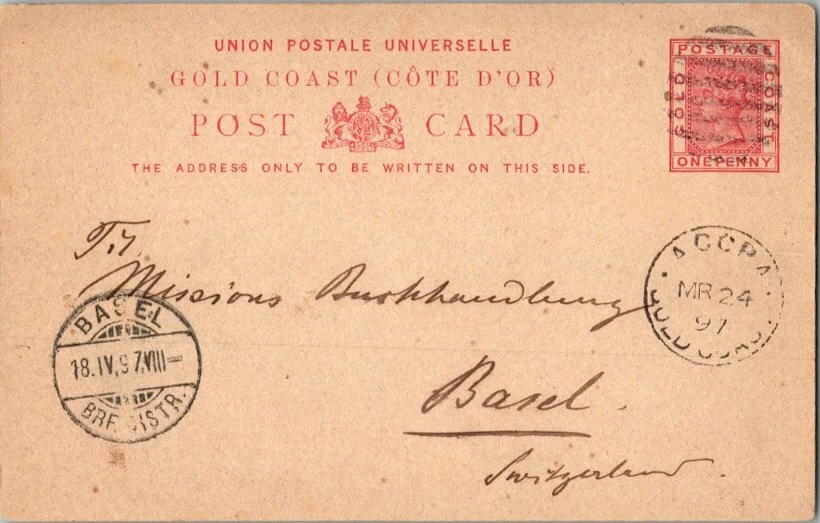 UNION POSTALE UNIVERSELLE
GOLD COAST (CÔTE D'OR)
POST CARD
THE ADDRESS ONLY TO BE WRITTEN ON THIS SIDE.
POSTAGE
GOLD
COAST
ONE PENNY
Missions Buchhandlung
Basel.
Switzerland.
ACCRA
MR 24
97
GOLD COAST
BASEL
18.IV.97.VIII–